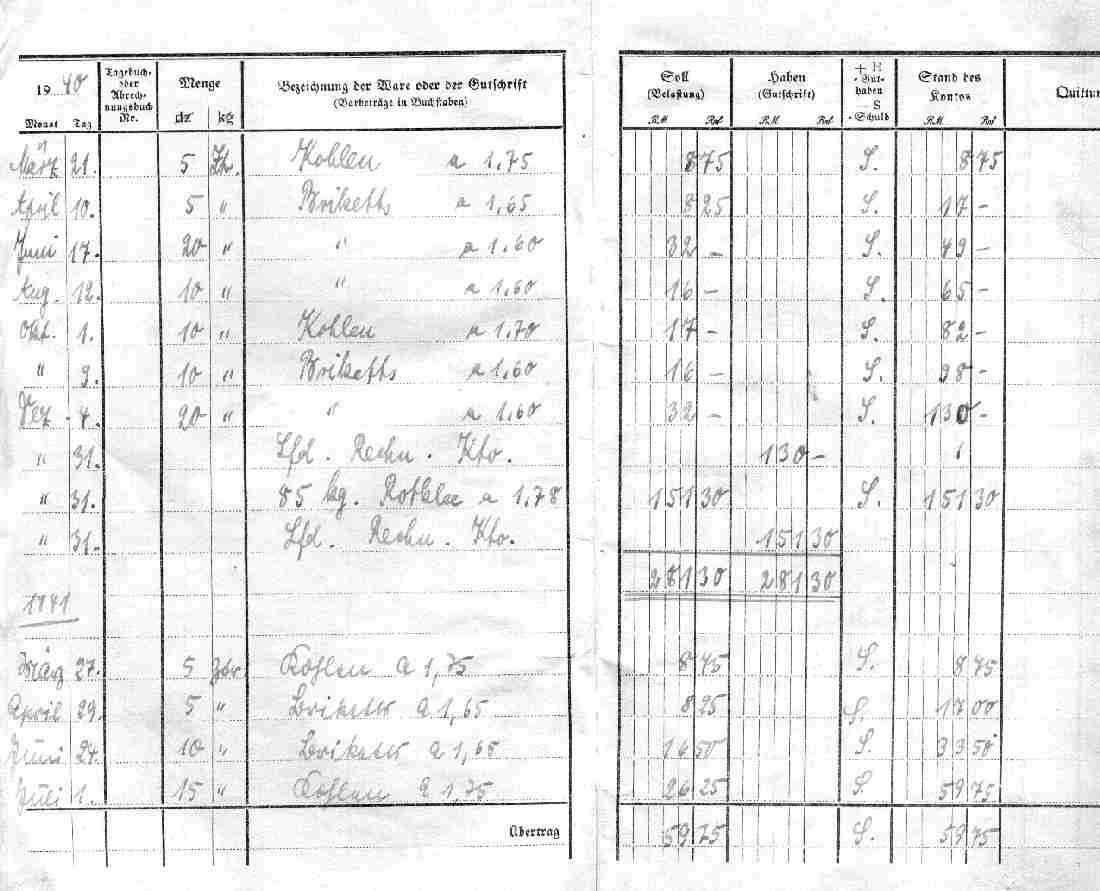 19 40
Tagebuch- oder Abrechnungsbuch Nr.
Menge
Bezeichnung der Ware oder der Gutschrift
(Vorbeträge in Buchstaben)
Soll (Belastung)
Haben (Gutschrift)
+ H - Guthaben
— S - Schuld
Stand des Kontos
Monat Tag dz kg RM Rpf RM Rpf RM Rpf
März 21. 5 Ztr. Kohlen a 1,75 8 75 S. 8 75
April 10. 5 " Briketts a 1,65 8 25 S. 17 -
Juni 17. 20 " " a 1,60 32 - S. 49 -
Aug. 12. 10 " " a 1,60 16 - S. 65 -
Okt. 1. 10 " Kohlen a 1,70 17 - S. 82 -
" 9. 10 " Briketts a 1,60 16 - S. 98 -
Dez 4. 20 " " a 1,60 32 - S. 130 -
" 31. Lfd. Rechn. Kto. 130 -
" 31. 85 kg. Rotklee a 1,78 151 30 S. 151 30
" 31. Lfd. Rechn. Kto. 151 30
281 30 281 30
1941
März 27. 5 Ztr. Kohlen a 1,75 8 75 S. 8 75
April 29. 5 " Briketts a 1,65 8 25 S. 17 00
Juni 24. 10 " Briketts a 1,65 16 50 S. 33 50
Juli 1. 15 " Kohlen a 1,75 26 25 S. 59 75
Übertrag 59 75 S. 59 75